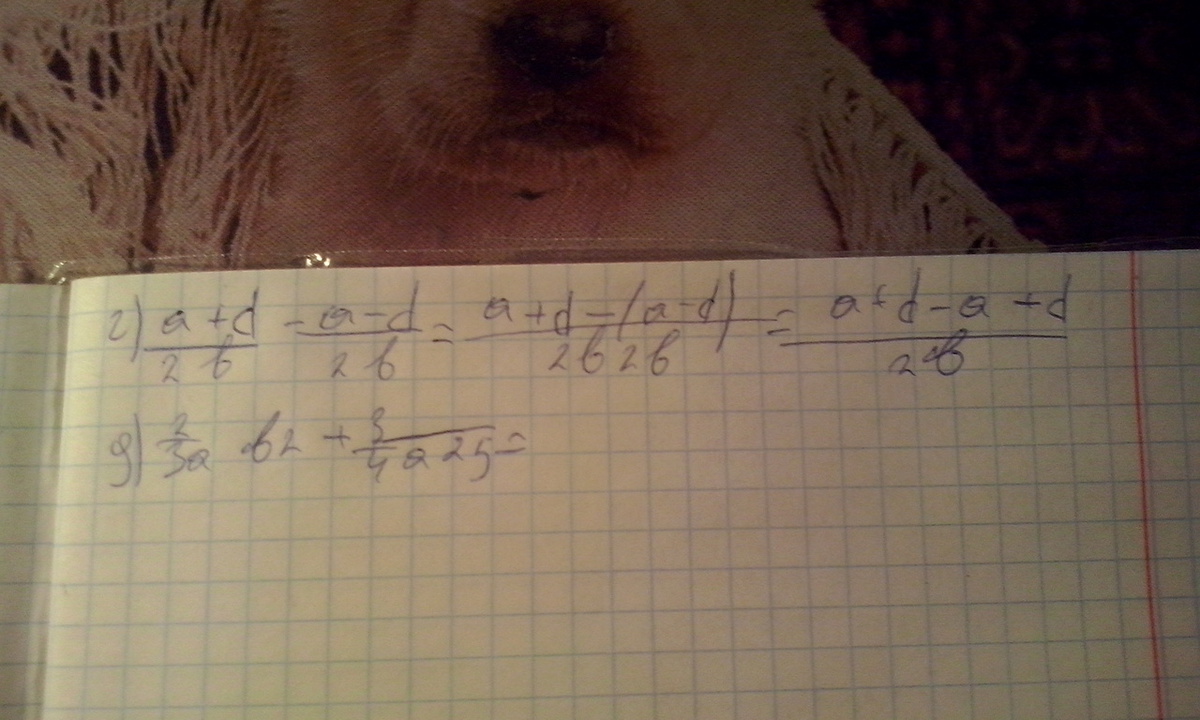 г) a+d/2b - a-d/2b = a+d-(a-d)/2b2b = a+d-a+d/2b
g) 2/3a b2 + 3/4 a25=